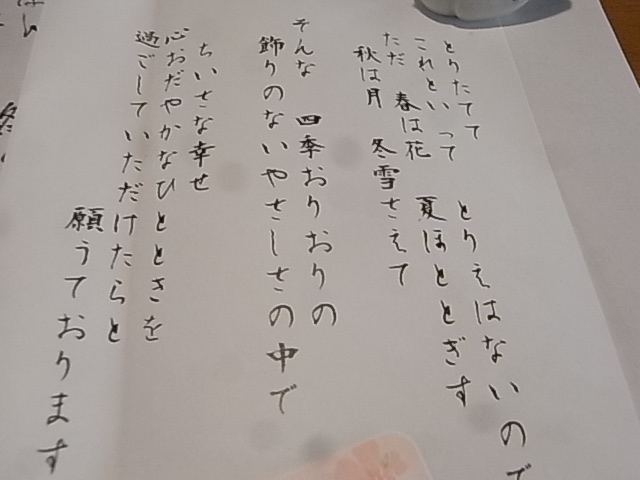 とりたてて
これといって　とりえはないので
ただ　春は花　夏ほととぎす
秋は月　冬雪さえて
そんな　四季おりおりの
飾りのないやさしさの中で
ちいさな幸せ
心おだやかなひとときを
過ごしていただけたらと
願うております